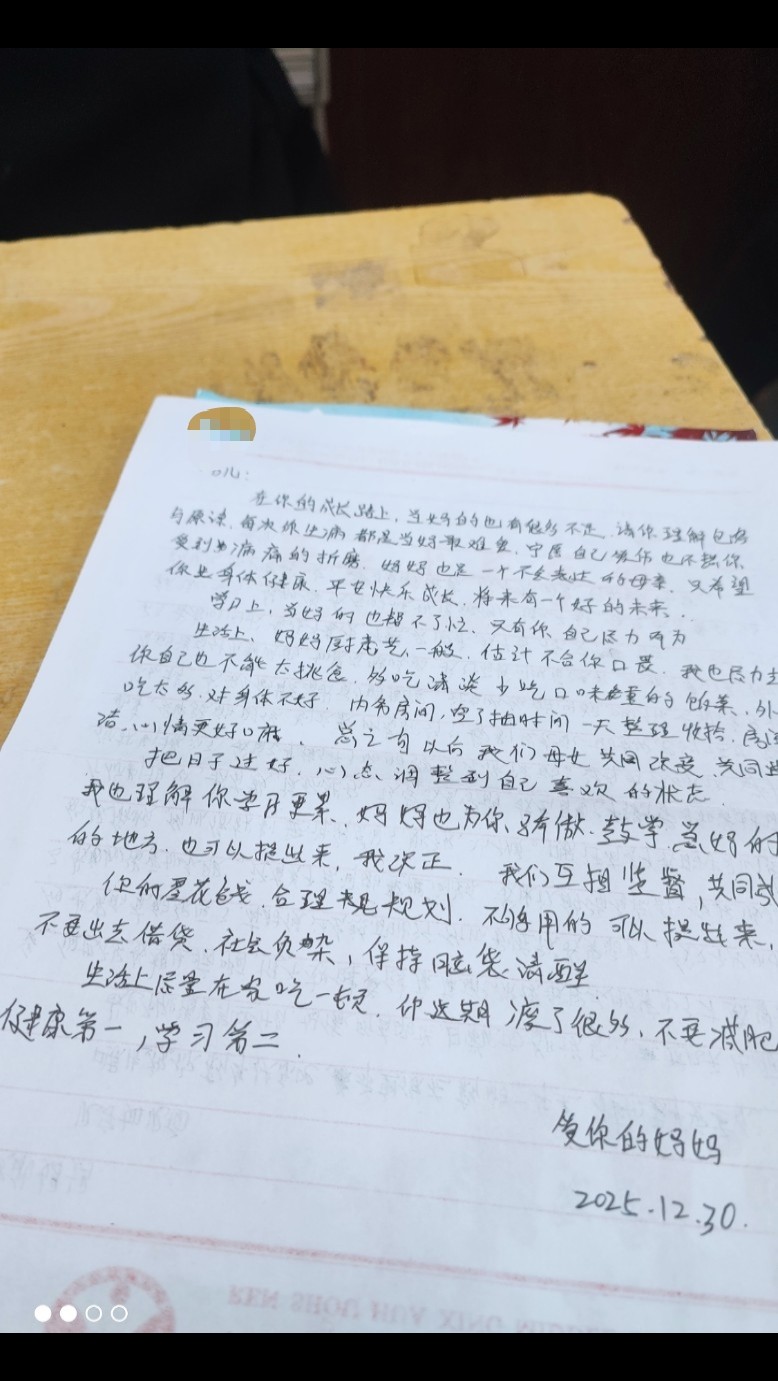 儿：
在你的成长路上，当妈的也有很多不足，请你理解包容
与原谅，每次你生病都是当妈最难受，宁愿自己受伤也不想你
受到病痛的折磨，妈妈也是一个不会表达的母亲，只希望
你身体健康、平安快乐成长，将来有一个好的未来．
学习上，当妈的也帮不了忙，只有你自己尽力而为
生活上，妈妈厨艺一般，估计不合你口味，我也尽力
你自己也不能太挑食，多吃清淡少吃口味重的饭菜，外
吃太多，对身体不好，内务房间，空了抽时间一天整理收拾，
洁，心情更好，总之可以后我们母女共同改变，共同
把日子过好，心态调整到自己喜欢的状态．
我也理解你学习更累，妈妈也为你骄傲．当妈的
的地方，也可以提出来，我改正．我们互相监督，共同
你的零花钱，合理规划，不够用的可以提出来，
不要出去借贷，社会负杂，保持脑袋清醒
生活上尽量在家吃一顿，你这期瘦了很多，不要减肥
健康第一，学习第二．
爱你的妈妈
2025.12.30.
REN SHOU HUA XING